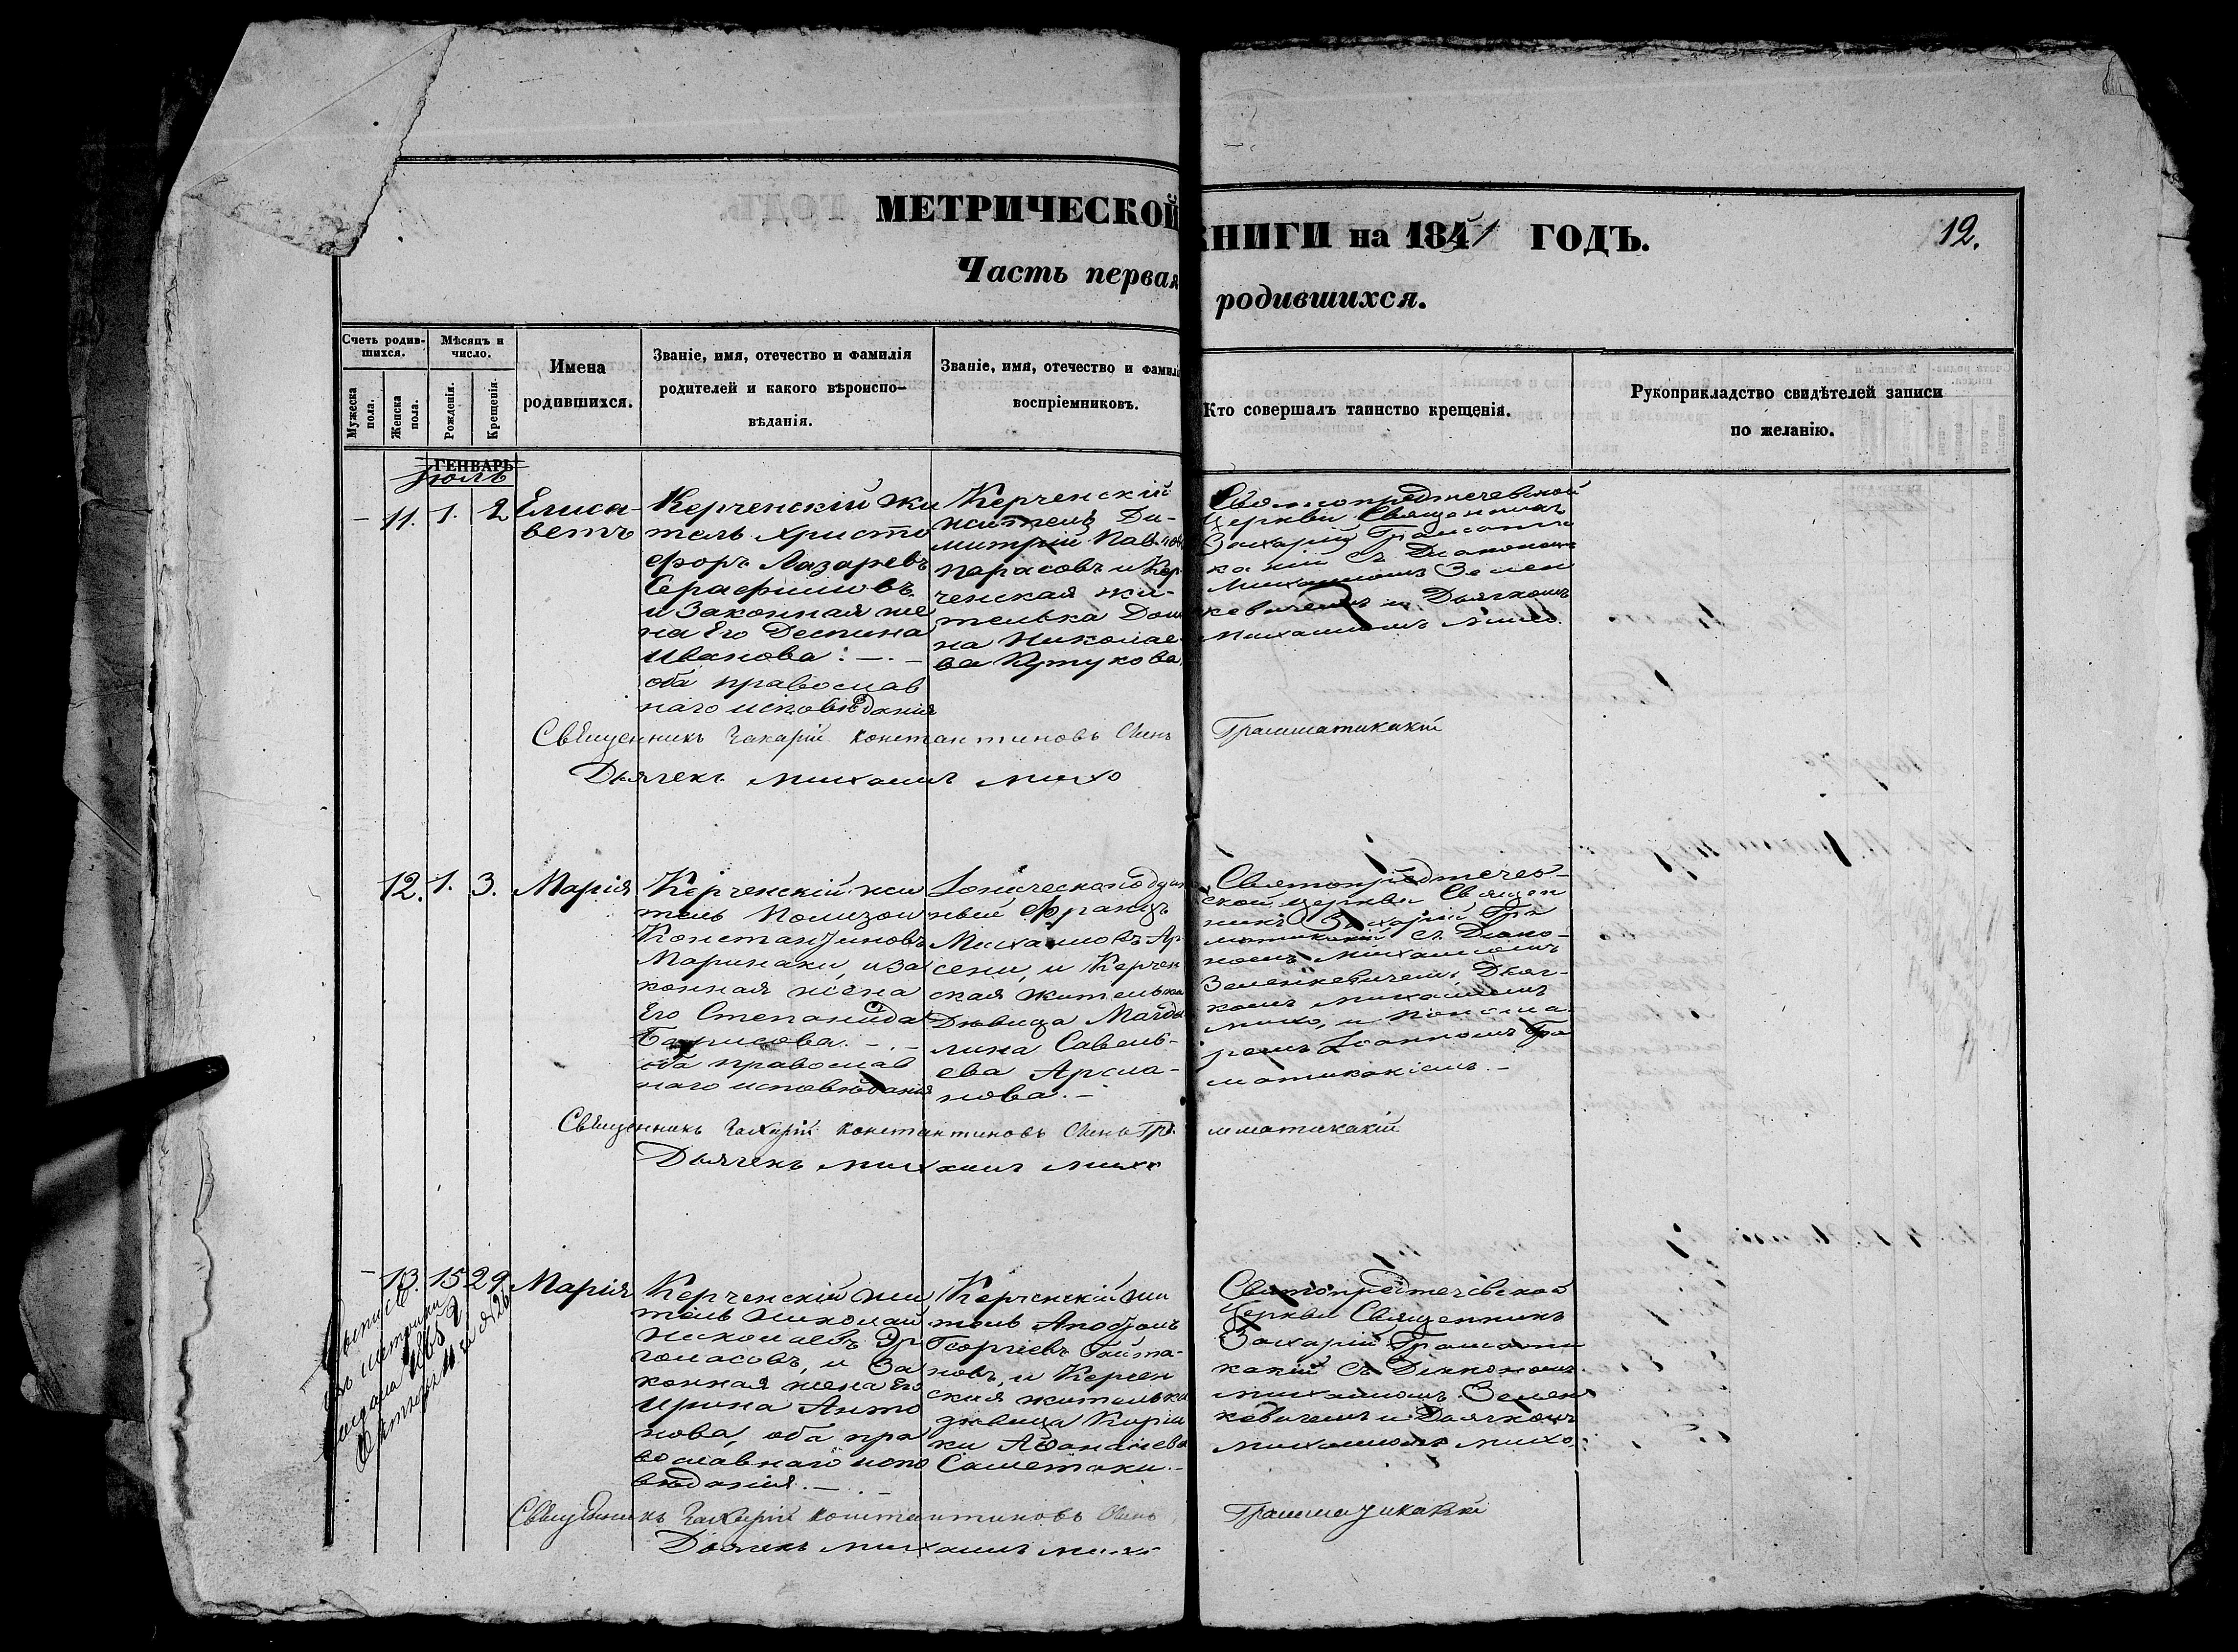 МЕТРИЧЕСКОЙ КНИГИ на 1841 ГОДЪ.
12.
Часть первая
родившихся.
Счетъ родив-
шихся.
Мужеска
пола.
Женска
пола.
Мѣсяцъ и
число.
Рожденія.
Крещенія.
Имена
родившихся.
Званіе, имя, отечество и фамилія
родителей и какого вѣроиспо-
вѣданія.
Званіе, имя, отечество и фамилі
воспріемниковъ.
Кто совершалъ таинство крещенія.
Рукоприкладство свидѣтелей записи
по желанію.
ГЕНВАРЬ
Іюль
– 11. 1. 2
Елиса-
ветъ
Керченскій жи
тель Христо
форъ Лазаревъ
Серафимовъ
и Законная же
на Его Деспина
Иванова. — . —
оба православ
наго исповѣданія
Керченскій
житель Ди-
митрій
Парасовъ и Кер-
ченская жи-
телька Дом
на Николае-
ва Кутукова,
Святопредтечевской
Церкви Священникъ
Захарій Граммати
какій съ Діакономъ
Михаиломъ Зелен
кевичемъ и Дьячкомъ
Михаиломъ Михо.
Священникъ Захарій Константиновъ Сынъ Грамматикакій
Дьячекъ Михаилъ Михо
12. 1. 3.
Марія
Керченскій жи
тель Полизои
Константиновъ
Маринаки, и за
конная жена
Его Степанида
Борисова. — . —
оба православ
наго исповѣданія
Іоническоподдан
ный Францъ
Михаиловъ Ар
сени, и Керчен
ская жителька
Дѣвица Магда
лина Савель-
ева Арсла-
нова. —
Святопредтечев-
ской церкви Священ
никъ Захарій Гра
матикакій съ Діако-
номъ Михаиломъ
Зеленкевичемъ, Дьяч-
комъ Михаиломъ
Михо, и Понома-
ремъ Іоанномъ Гра
матикакіемъ. —
Священникъ Захарій Константиновъ Сынъ Грамматикакій
Дьячекъ Михаилъ Михо
– 13. 15 29.
Марія
Керченскій жи
тель Николай
Николаевъ
и За
конная жена Его
Ирина Анто
нова, оба пра
вославнаго испо
вѣданія. — . —
Керченскій жи
тель Апостолъ
Георгіевъ Гайта-
новъ, и Керчен
ская жителька
дѣвица Киріа
ки Афанасіева
Саметаки. —
Святопредтечевской
Церкви Священникъ
Захарій Граммати
какій съ Діакономъ
Михаиломъ Зелен
кевичемъ и Дьячкомъ
Михаиломъ Михо,
Священникъ Захарій Константиновъ Сынъ Грамматикакій
Дьячекъ Михаилъ Михо